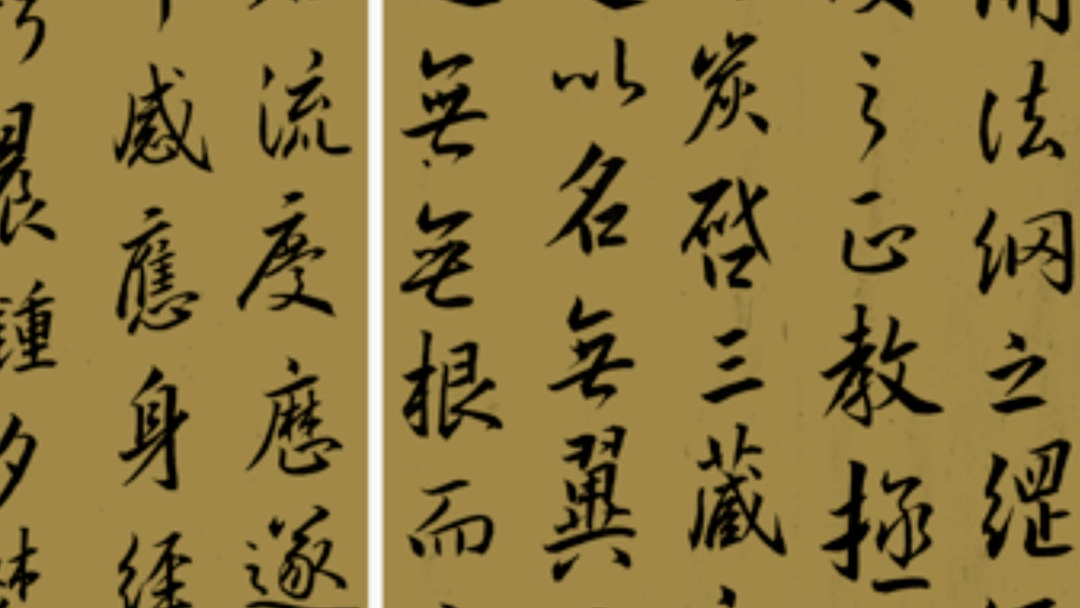 法網之綱
之正教拯
炭啓三藏
以名無翼
無無根而
流慶歷遂
感應身經
晨鍾夕梵